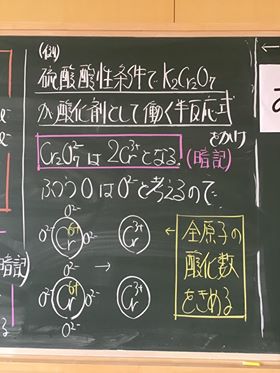 (例4)
硫酸酸性条件でK₂Cr₂O₇
が酸化剤として働く半反応式
をかけ
Cr₂O₇²⁻は2Cr³⁺となる.(暗記)
ふつうOはO²⁻と考えるので.
O²⁻
O²⁻ Cr⁶⁺ O²⁻ Cr³⁺
O²⁻ →
O²⁻ Cr⁶⁺ O²⁻ Cr³⁺
O²⁻
← 全原子の
酸化数
をきめる
暗記)